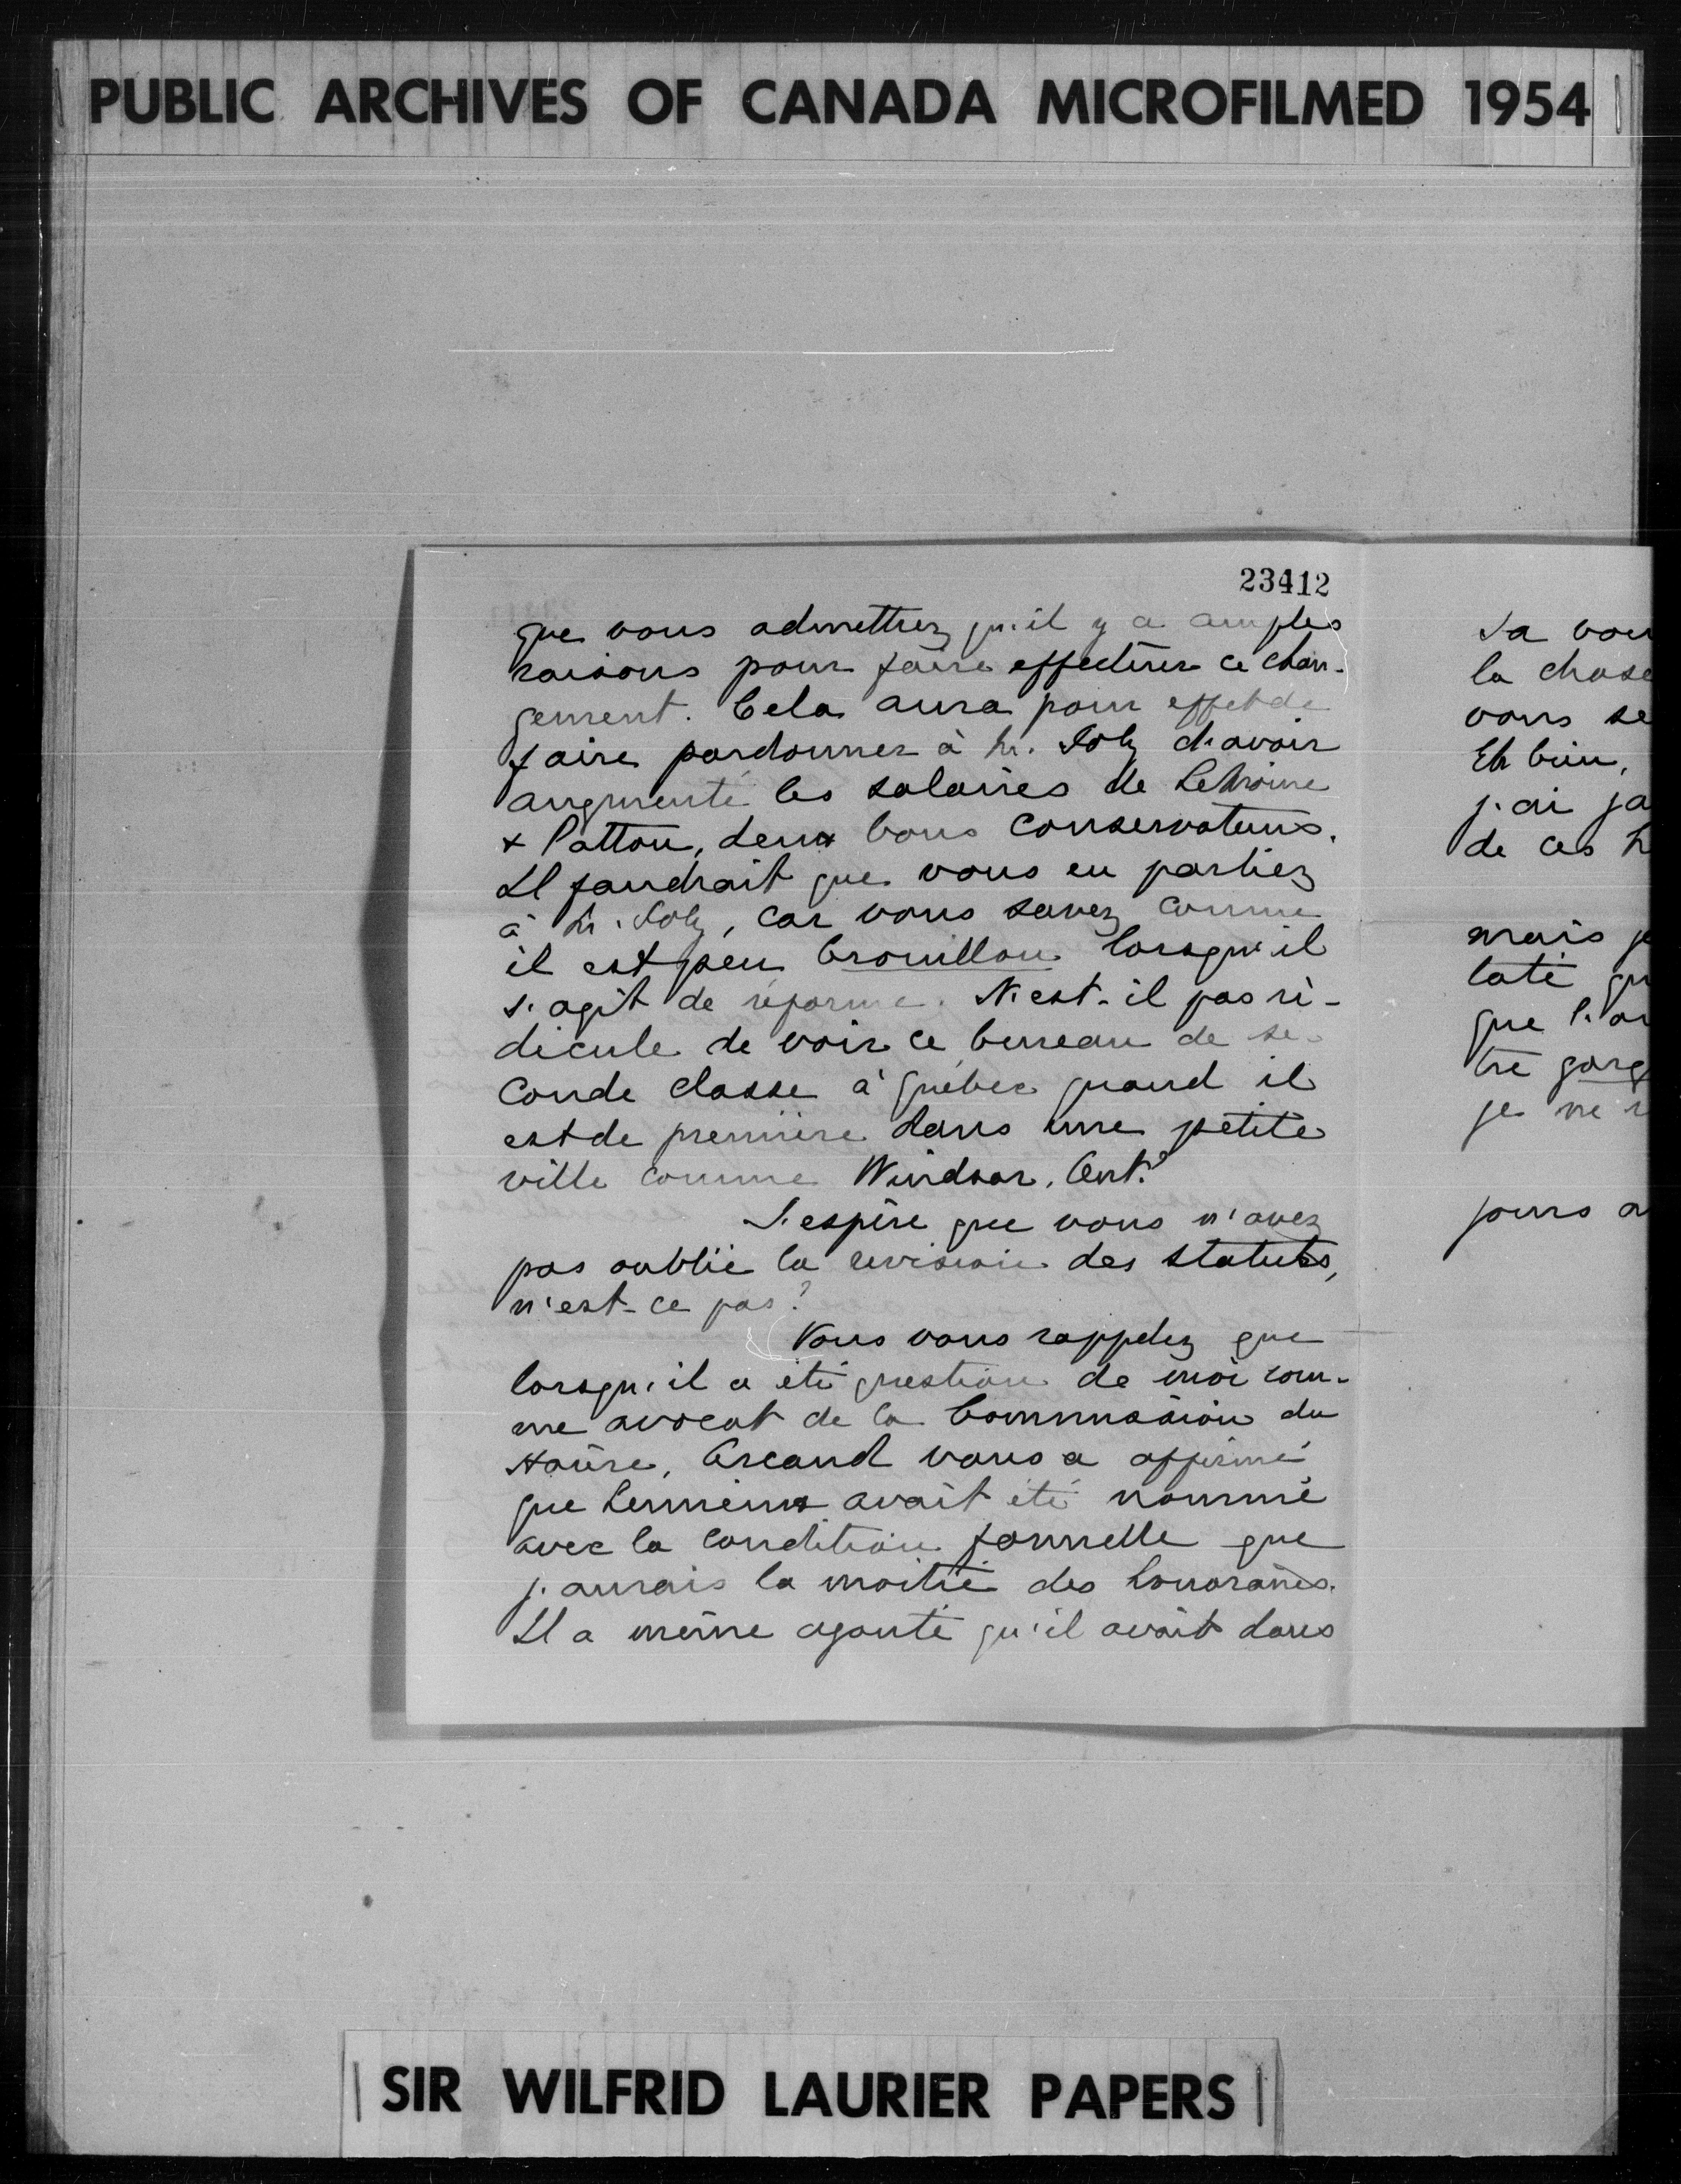 PUBLIC ARCHIVES OF CANADA MICROFILMED 1954
23412
que vous admettrez qu'il y a amples
raisons pour faire effectuer ce chan-
gement. Cela aura pour effet de
faire pardonner à M. Joly d'avoir
augmenté les salaires de LeMoine
& Patton, deux bons conservateurs.
Il faudrait que vous en parliez
à M. Joly, car vous savez comme
il est peu brouillon lorsqu'il
s'agit de réforme. N'est-il pas ri-
dicule de voir ce bureau de se-
conde classe à Québec quand il
est de première dans une petite
ville comme Windsor, Ont?
J'espère que vous n'avez
pas oublié la revision des statuts,
n'est-ce pas?
Vous vous rappelez que
lorsqu'il a été question de moi com-
me avocat de la Commission du
Hâvre, Arcand vous a affirmé
que Lemieux avait été nommé
avec la condition formelle que
j'aurais la moitié des honoraires.
Il a même ajouté qu'il avait dans
sa vou
la chose
vous se
Eh bien,
j'ai ja
de ces h
mais je
laté qu
que l'or
tre gorg
je ne r
jours a
SIR WILFRID LAURIER PAPERS